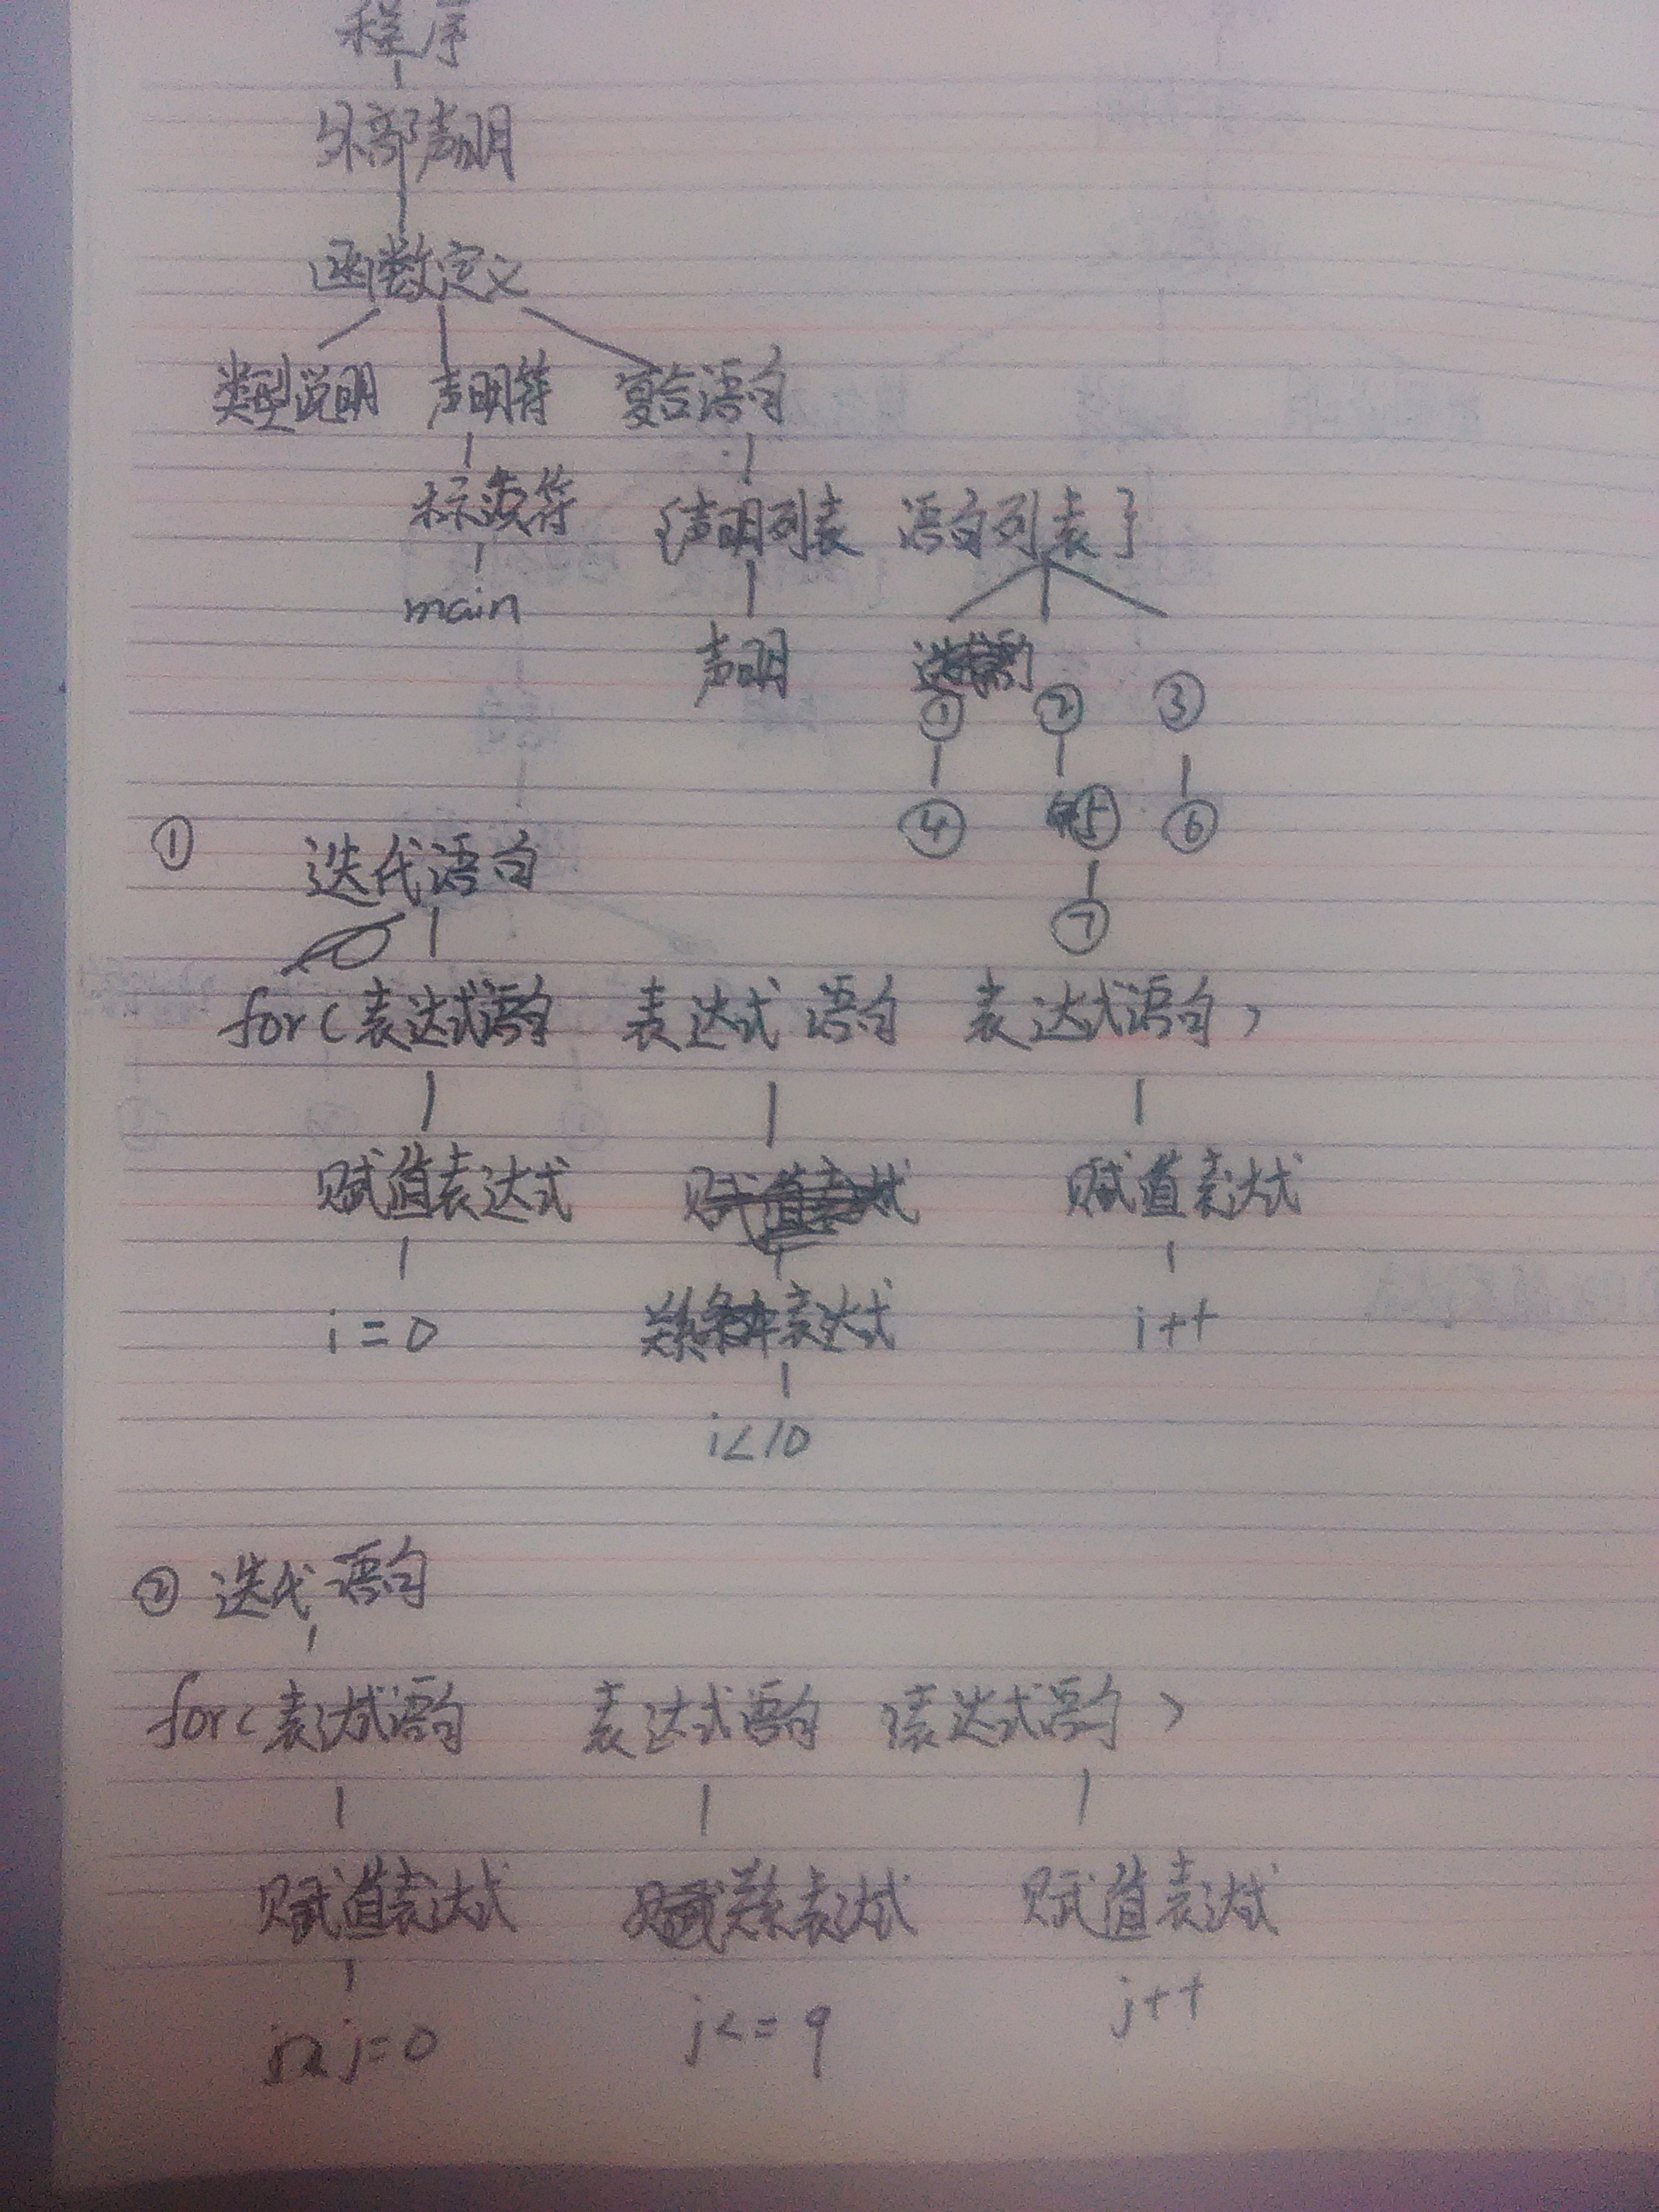 程序
外部声明
函数定义
类型说明 声明符 复合语句
标识符 {声明列表 语句列表}
main
声明
① ② ③
④ ⑤ ⑥
① 迭代语句
⑦
for(表达式语句 表达式语句 表达式语句)
赋值表达式 赋值表达式
i=0 关系表达式 i++
i<10
② 迭代语句
for(表达式语句 表达式语句 表达式语句)
赋值表达式 关系表达式 赋值表达式
j=0 j<=9 j++